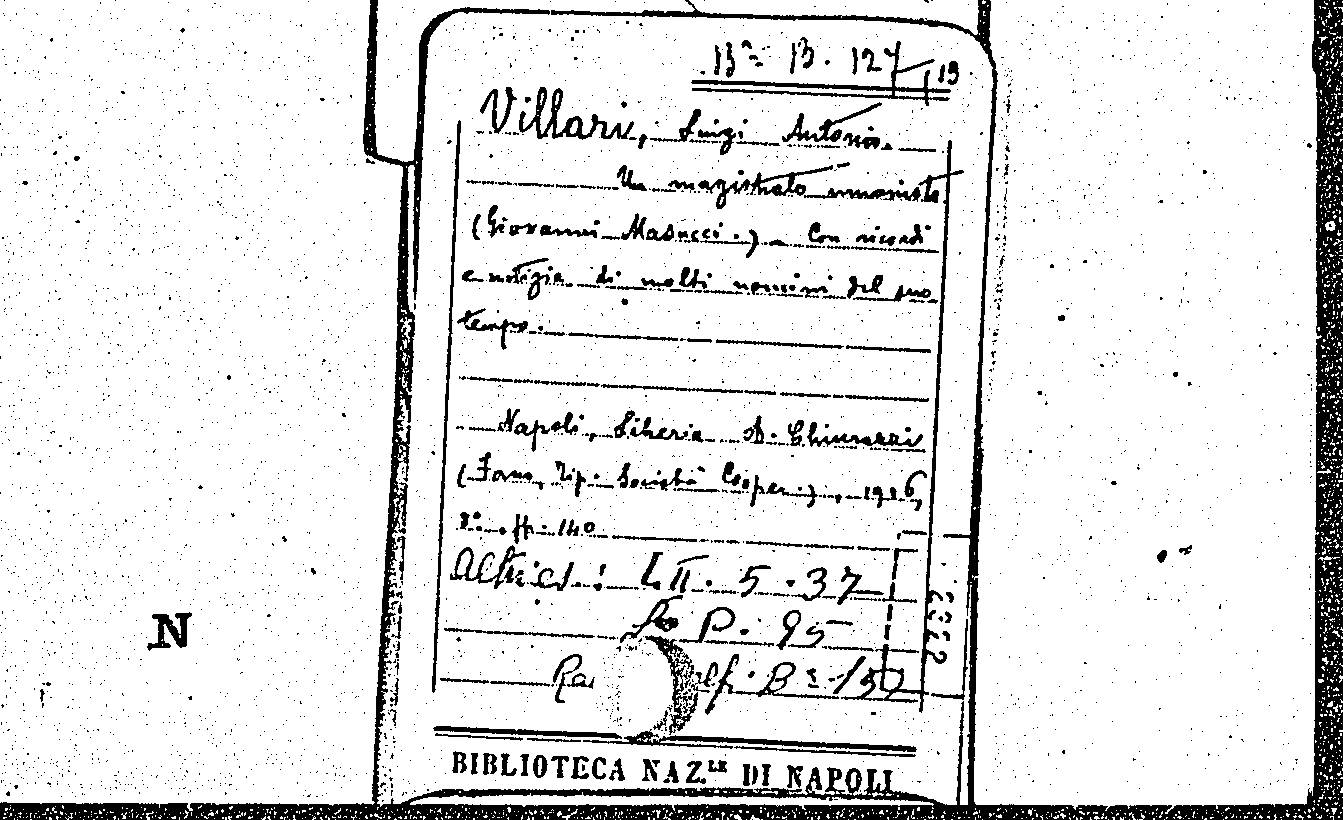 B.ª B. 127 / 19
Villari, Luigi Antonio.
Un magistrato umanista
(Giovanni Masucci.) - Con ricordi
e notizie di molti uomini del suo
tempo.
Napoli, Libreria A. Chiurazzi
(Tip. Società Cooper.), 1916,
8.º pp. 140
Altri es.: L.II. 5. 37
P. 95
B
N
BIBLIOTECA NAZ.LE DI NAPOLI